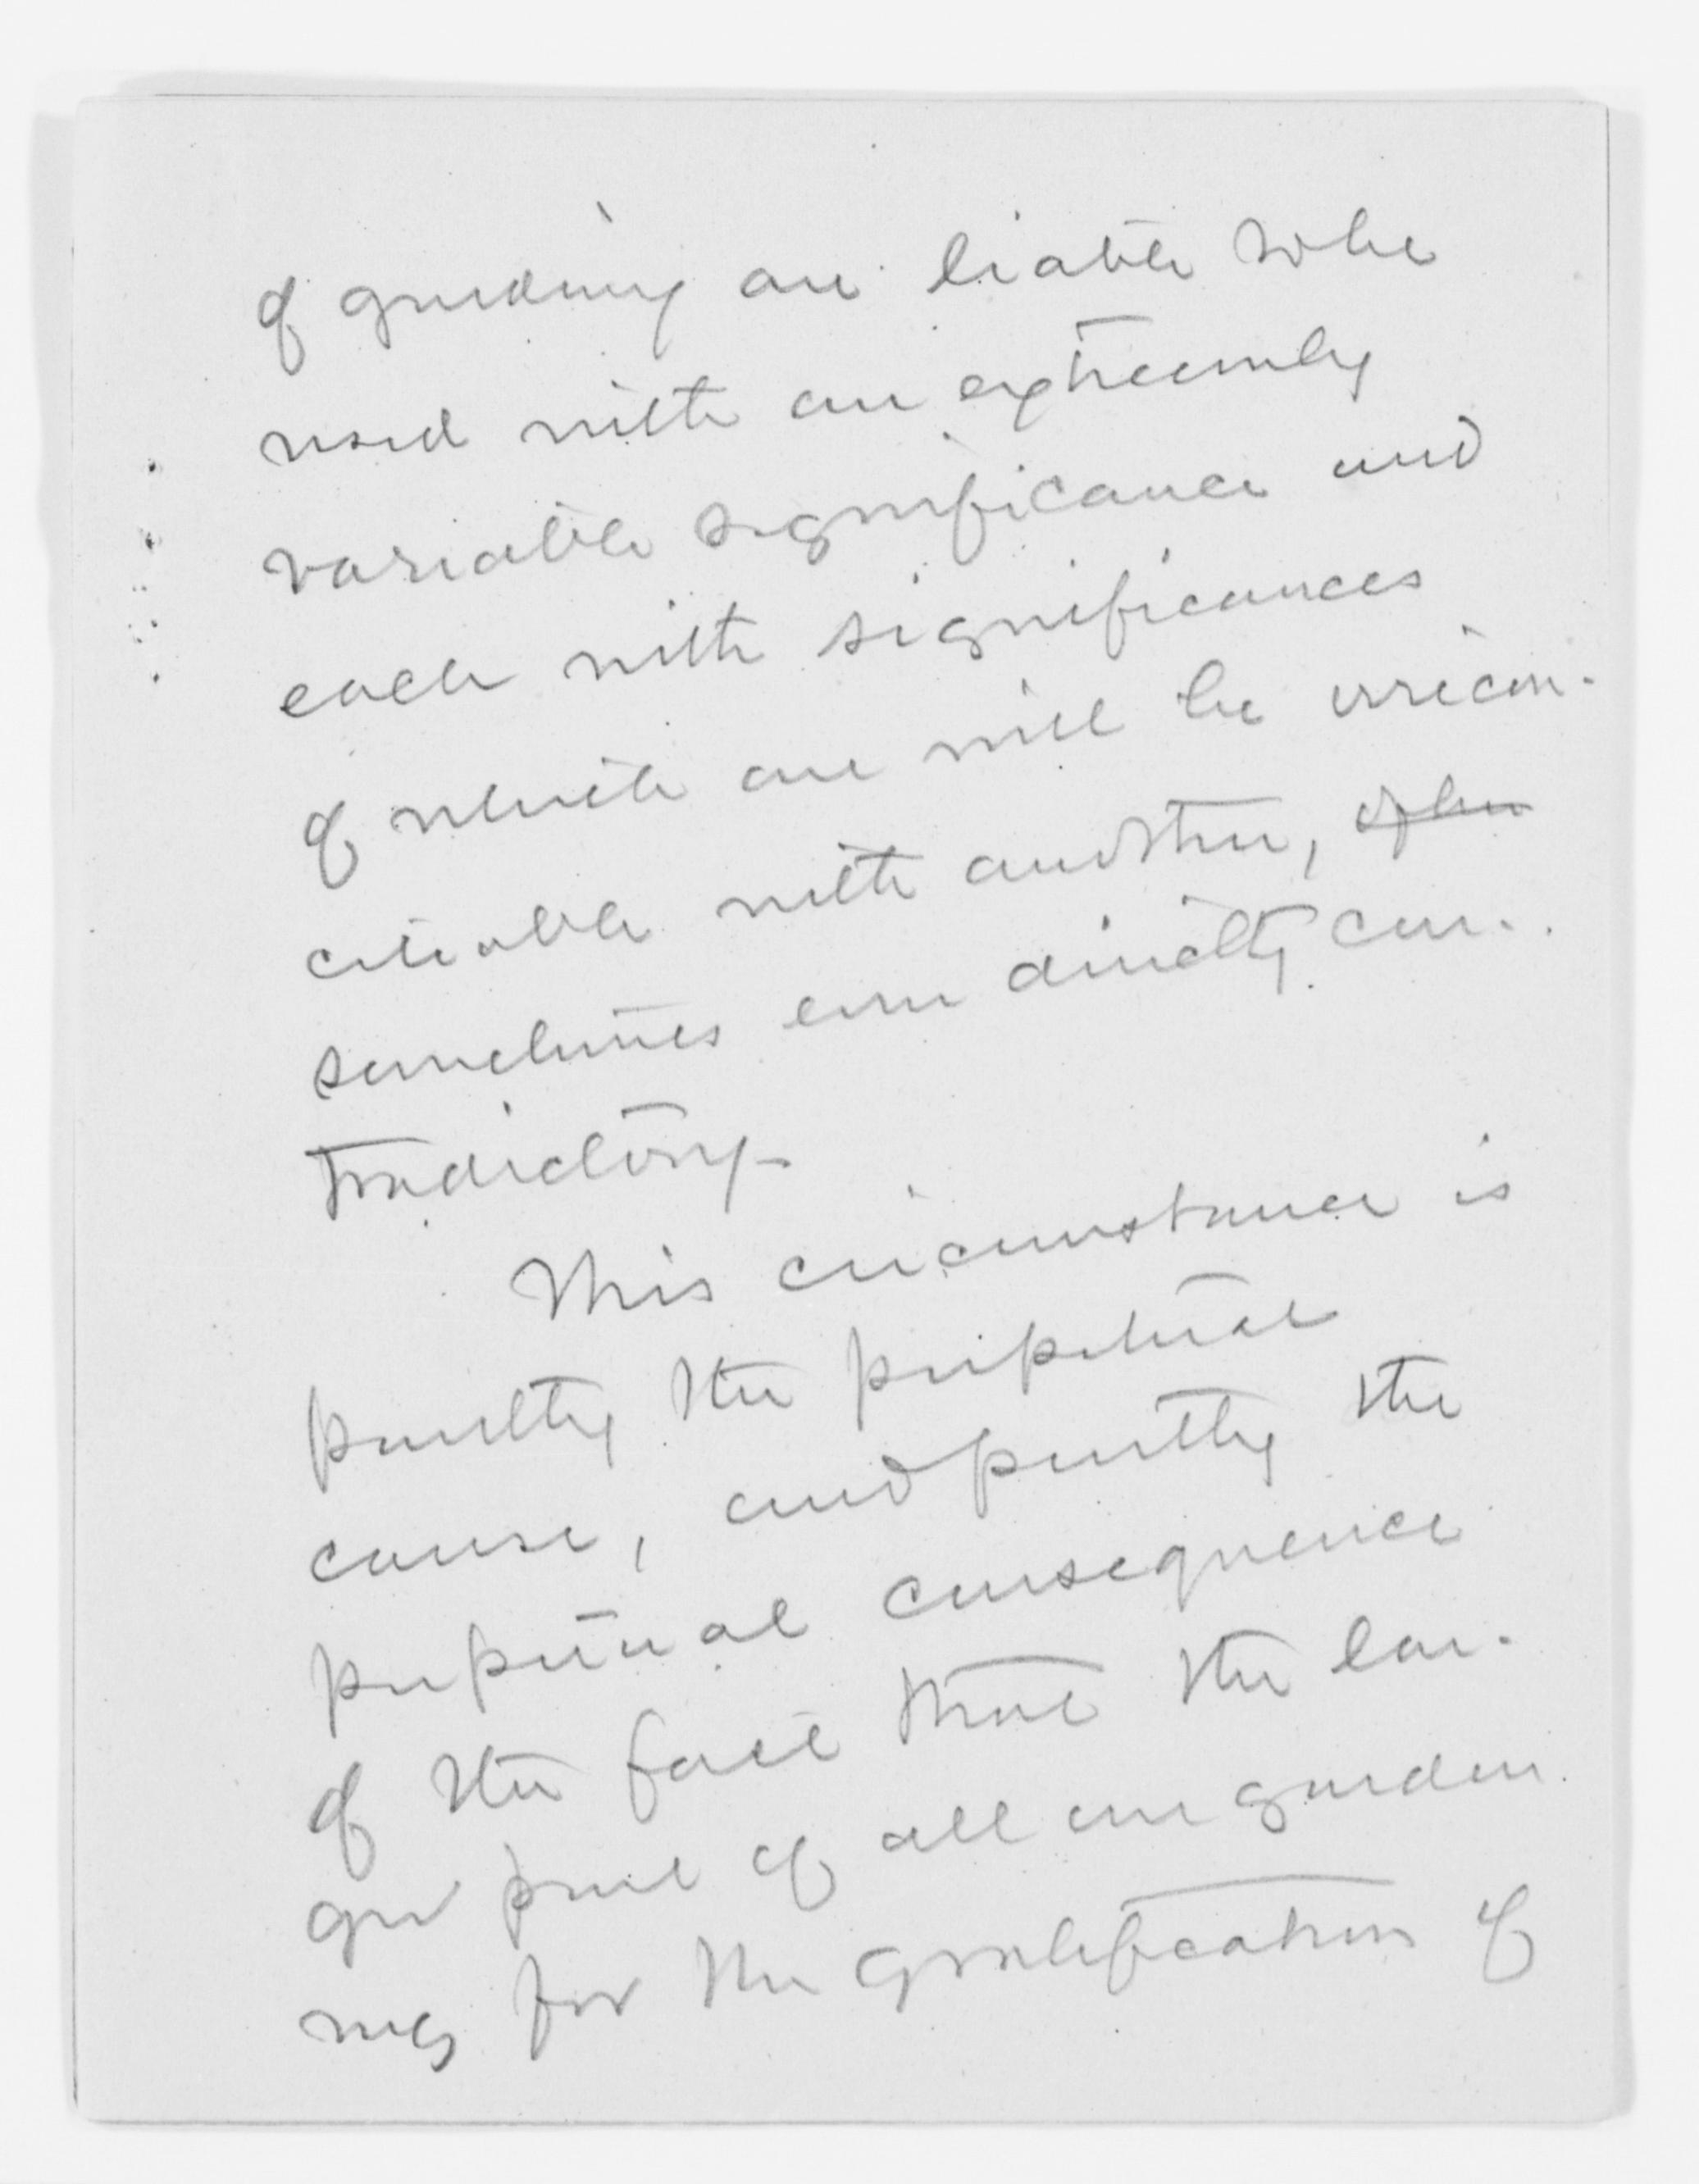 of gardening are liable to be
used with an extreemly
variable significance and
each with significances
of which one will be irrecon-
cileable with another, often
sometimes even directly con-
tradictory-
This circumstance is
partly the perpetual
cause, and partly the
perpetual consequence
of the fact that the lar-
ger part of all our garden
ing for the gratification of